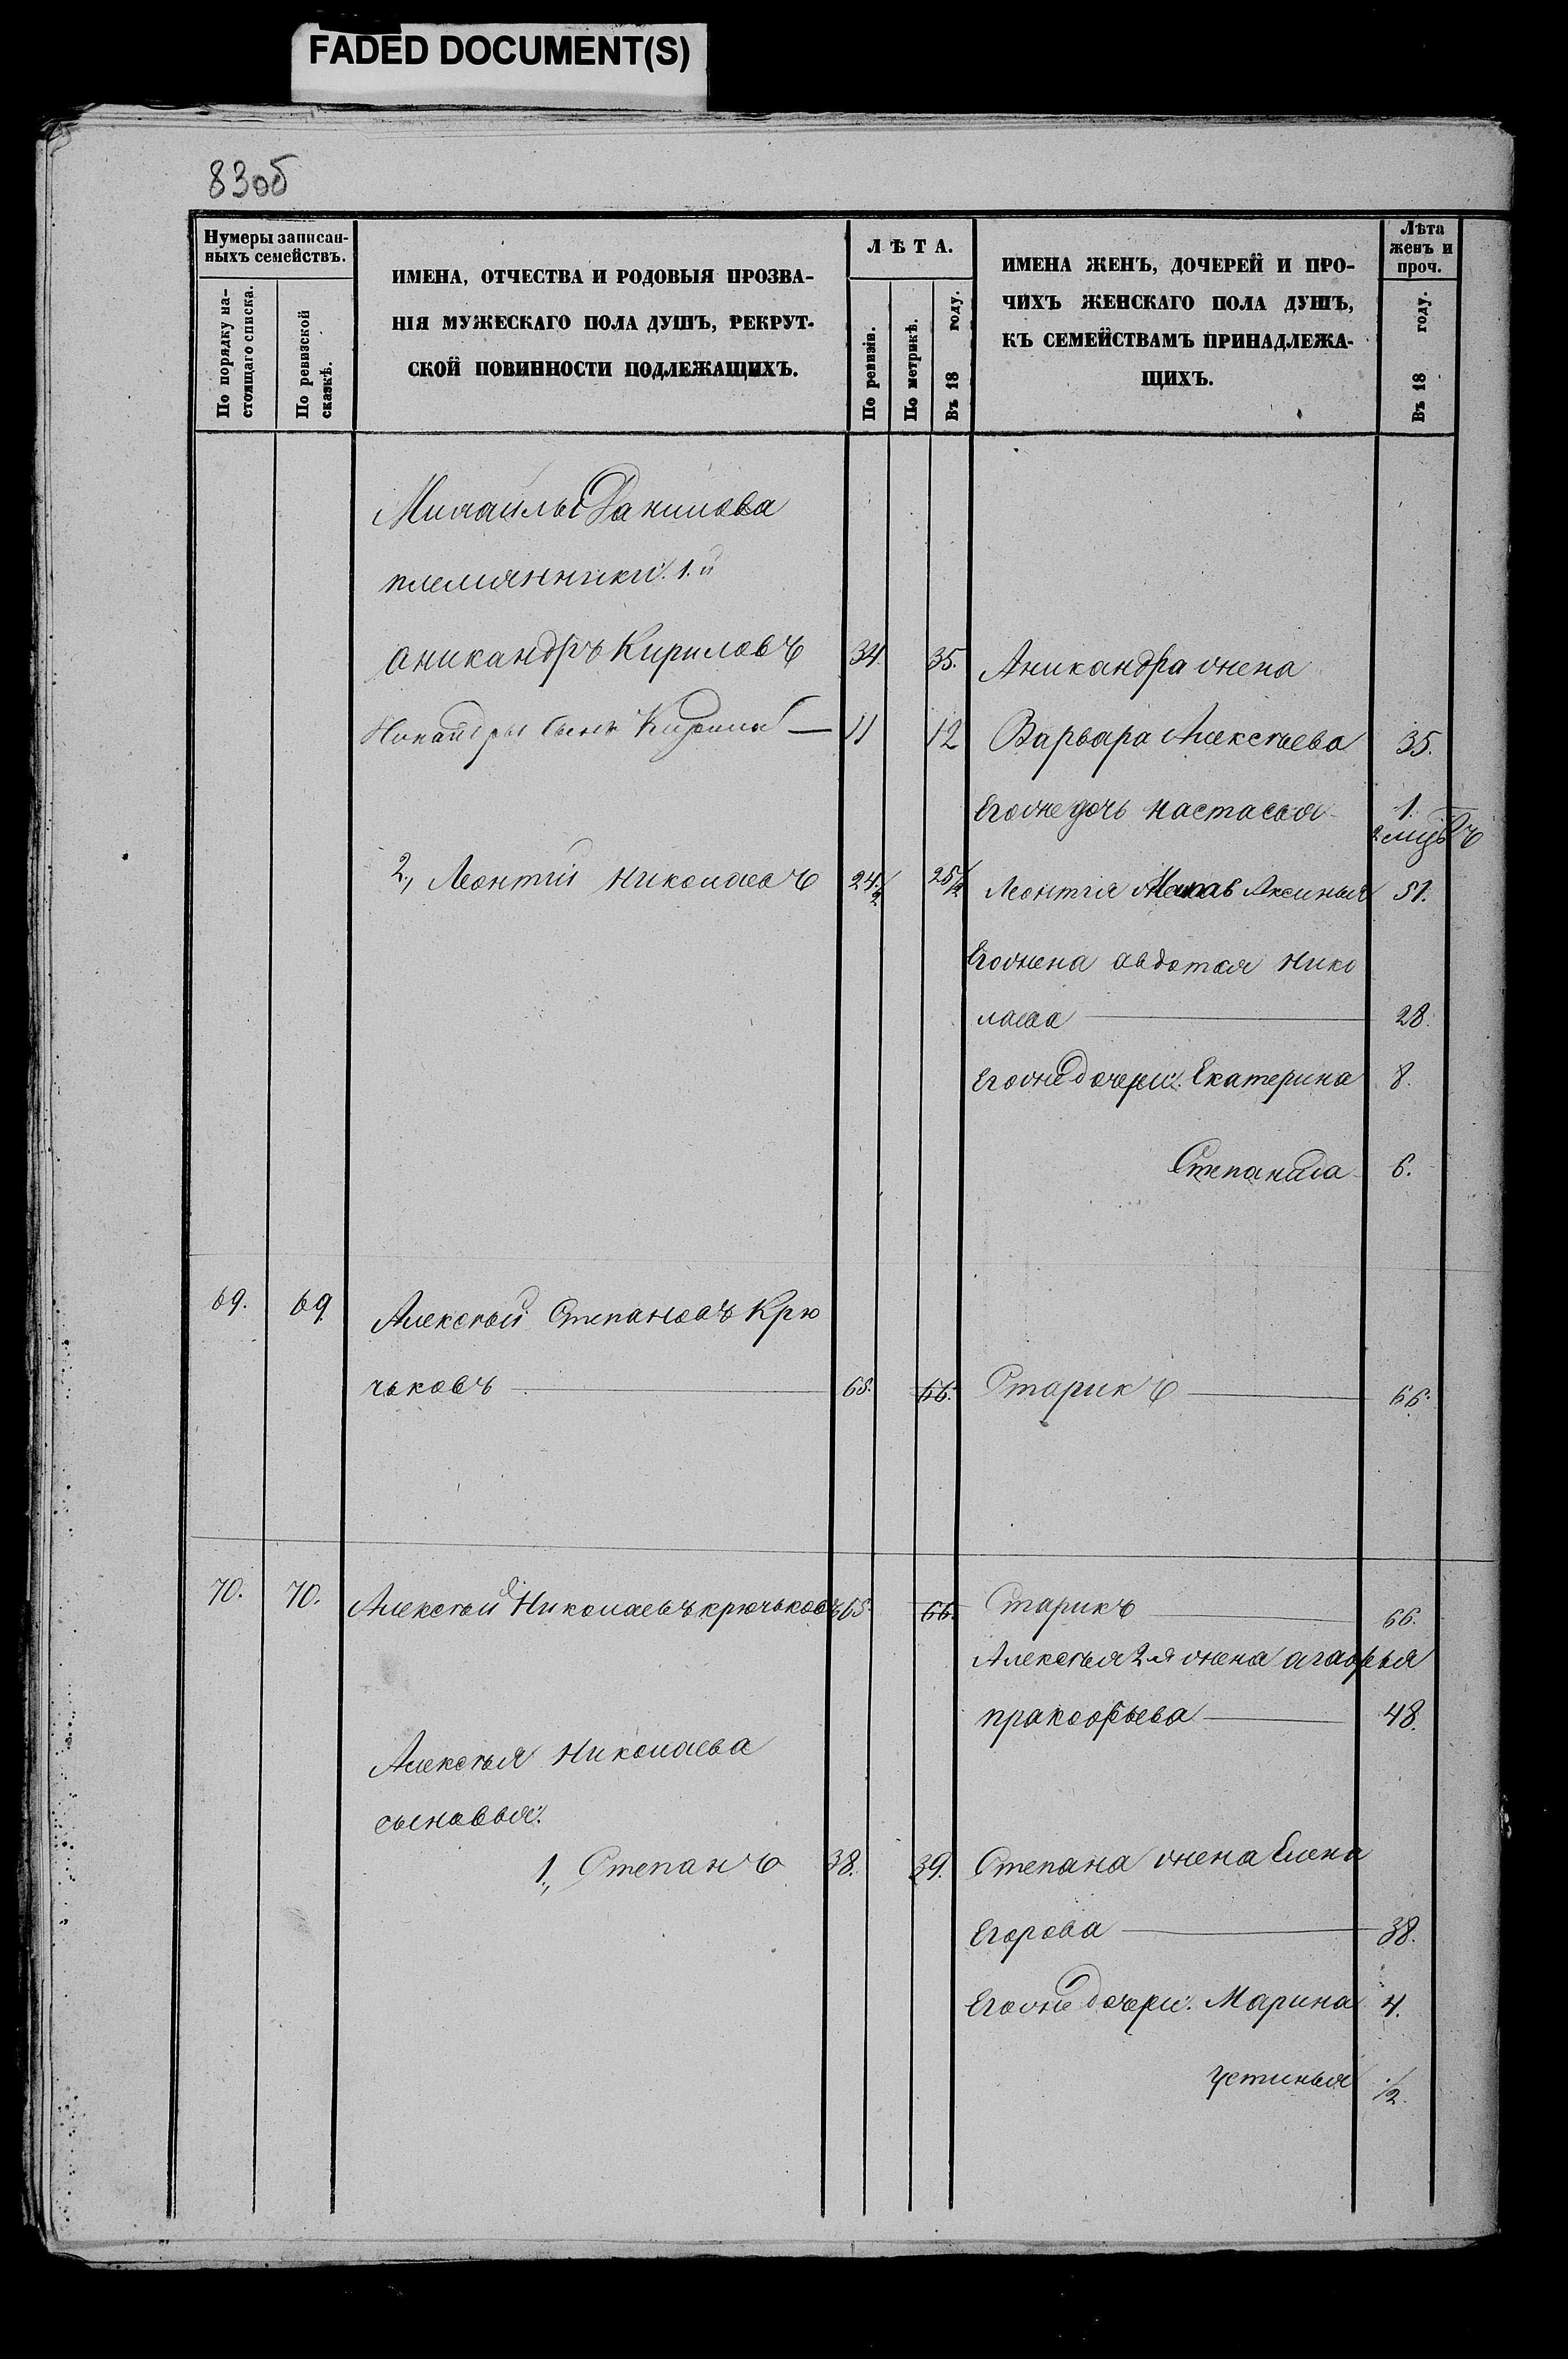 FADED DOCUMENT(S)
83об
Нумеры записан-
ныхъ семействъ.
По порядку на-
стоящаго списка.
По ревизской
сказкѣ.
ИМЕНА, ОТЧЕСТВА И РОДОВЫЯ ПРОЗВА-
НІЯ МУЖЕСКАГО ПОЛА ДУШЪ, РЕКРУТ-
СКОЙ ПОВИННОСТИ ПОДЛЕЖАЩИХЪ.
ЛѢТА.
По ревизіи.
По метрикѣ.
Въ 18 году.
ИМЕНА ЖЕНЪ, ДОЧЕРЕЙ И ПРО-
ЧИХЪ ЖЕНСКАГО ПОЛА ДУШЪ,
КЪ СЕМЕЙСТВАМЪ ПРИНАДЛЕЖА-
ЩИХЪ.
Лѣта
женъ и
проч.
Въ 18 году.
Михайлы Данилова
племянники: 1.й
Аникандръ Кириловъ 34 35. Аникандра жена
сынъ 11 12 Варвара Алексѣева 35.
Егожедочь Настасья 1.
2, Леонтій Николаевъ 24 1/2 25 1/2 Леонтія Аксинья 51.
Егожена авдотья Нико
лаева 28.
Егожедочери: Екатерина 8.
Степанида 6.
69. 69 Алексѣй Степановъ Крю
чьковъ 65. 66. Старикъ 66.
70. 70. Алексѣй Николаевъ крючьковъ 65 66. Старикъ 66.
Алексѣя 2я жена агафья
пракофьева 48.
Алексѣя Николаева
сыновья:
1, Степанъ 38. 39. Степана жена Елена
Егорова 38.
Егоже дочери: Марина 4.
устинья 1/2.